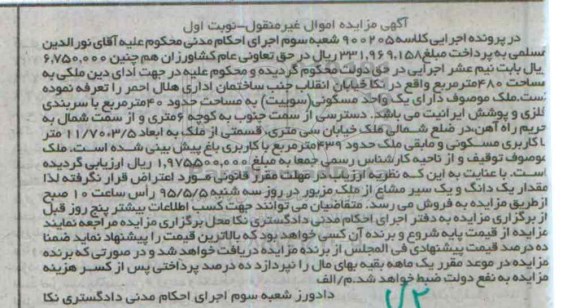 آگهی مزایده اموال غیرمنقول-نوبت اول
در پرونده اجرایی کلاسه ۹۰۰۲۰۵ شعبه سوم اجرای احکام مدنی محکوم علیه آقای نورالدین
مسلمی به پرداخت مبلغ ۳۳۱,۹۶۹,۱۵۸ ریال در حق تعاونی عام کشاورزان هم چنین ۶,۷۵۰,۰۰۰
ریال بابت نیم عشر اجرایی در حق دولت محکوم گردیده و محکوم علیه در جهت ادای دین ملکی به
مساحت ۴۸۰ مترمربع واقع در نکا خیابان انقلاب جنب ساختمان اداری هلال احمر را تعرفه نموده
است.ملک موصوف دارای یک واحد مسکونی(سوییت) به مساحت حدود ۴۰ مترمربع با سربندی
فلزی و پوشش ایرانیت می باشد. دسترسی از سمت جنوب به کوچه ۶ متری و از سمت شمال به
حریم راه آهن،در ضلع شمالی ملک خیابان سی متری، قسمتی از ملک به ابعاد ۱۱/۷۰*۳/۵ متر
با کاربری مسکونی و مابقی ملک حدود ۴۳۹ مترمربع با کاربری باغ پیش بینی شده است. ملک
موصوف توقیف و از ناحیه کارشناس رسمی جمعا به مبلغ ۱,۹۷۵۵۰۰,۰۰۰ ریال ارزیابی گردیده
است. با عنایت به این که نظریه ارزیاب در مهلت مقرر قانونی مورد اعتراض قرار نگرفته لذا
مقدار یک دانگ و یک سیر مشاع از ملک مزبور در روز سه شنبه ۹۵/۵/۵ رأس ساعت ۱۰ صبح
ازطریق مزایده به فروش می رسد. متقاضیان می توانند جهت کسب اطلاعات بیشتر پنج روز قبل
از برگزاری مزایده به دفتر اجرای احکام مدنی دادگستری نکا محل برگزاری مزایده مراجعه نمایند
مزایده از قیمت پایه شروع و برنده آن کسی خواهد بود که بالاترین قیمت را پیشنهاد نماید ضمنا
ده درصد قیمت پیشنهادی فی المجلس از برنده مزایده دریافت خواهد شد و در صورتی که برنده
مزایده در موعد مقرر یک ماهه بقیه بهای مال را نپردازد ده درصد پرداختی پس از کسر هزینه
مزایده به نفع دولت ضبط خواهد شد.م/الف
دادورز شعبه سوم اجرای احکام مدنی دادگستری نکا